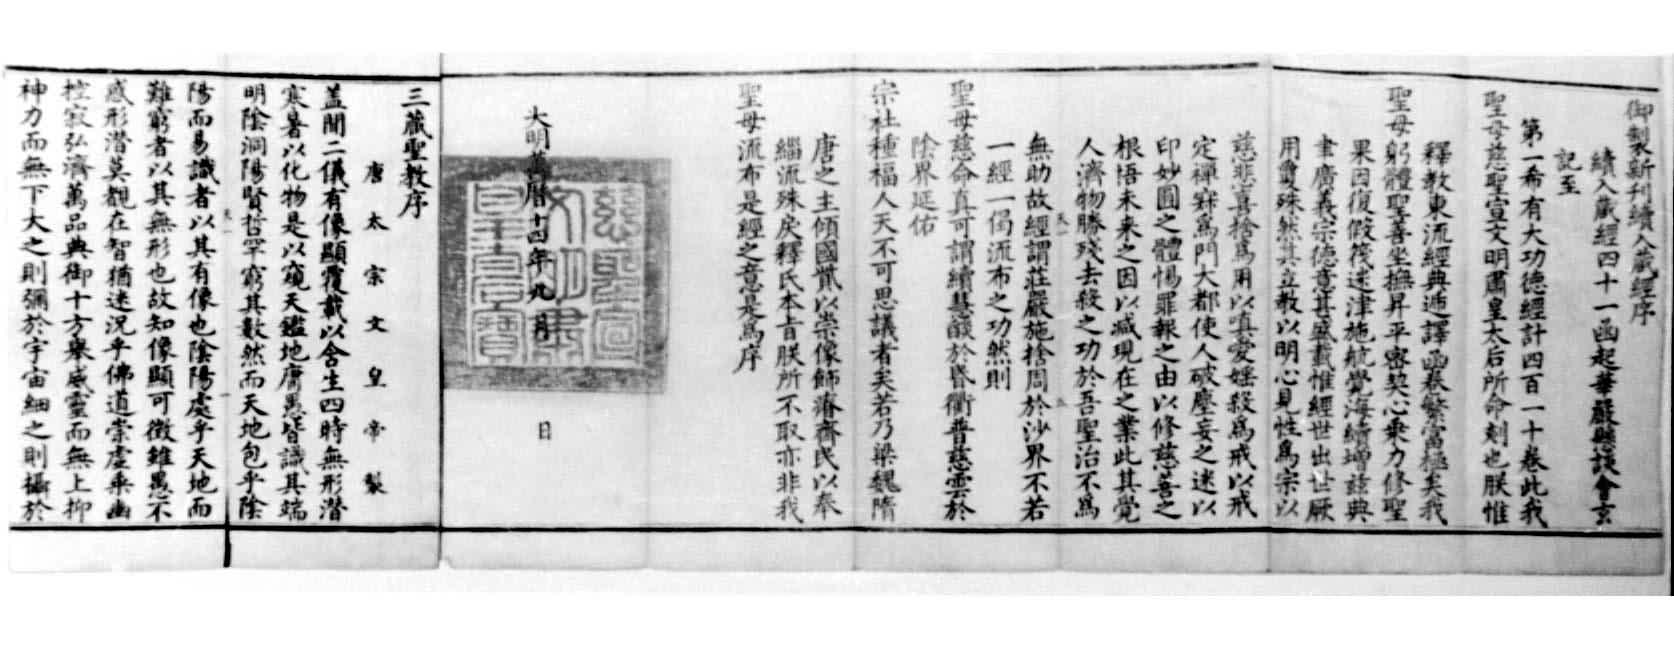 御製新刊續入藏經序
續入藏經四十一函起華嚴懸談會玄
記至
第一希有大功德經計四百一十卷此我
聖母慈聖宣文明肅皇太后所命刻也朕惟
釋教東流經典逓譯函卷繁富極矣我
聖母躬體聖善坐撫昇平密契心乗力修聖
果因復假筏迷津施航覺海續增茲典
聿廣義宗德意甚盛載惟經世出世厥
用雖殊然其立教以明心見性為宗以
慈悲喜捨為用以嗔愛婬殺為戒以戒
定禪寂為門大都使人破塵妄之迷以
印妙圓之體惕罪報之由以修慈善之
根悟未来之因以減現在之業此其覺
人濟物勝殘去殺之功於吾聖治不為
無助故經謂莊嚴施捨周於沙界不若
一經一偈流布之功然則
聖母慈命真可謂續慧燄於昏衢普慈雲於
陰界延佑
宗社種福人天不可思議者矣若乃梁魏隋
唐之主傾國貲以崇像飾瘠齊民以奉
緇流殊戾釋氏本旨朕所不取亦非我
聖母流布是經之意是為序
大明萬曆十四年九月 日
慈聖宣
文明肅
皇太后寶
三藏聖教序
唐太宗文皇帝製
蓋聞二儀有像顯覆載以含生四時無形潛
寒暑以化物是以窺天鑑地庸愚皆識其端
明陰洞陽賢哲罕窮其數然而天地包乎陰
陽而易識者以其有像也陰陽處乎天地而
難窮者以其無形也故知像顯可徵雖愚不
惑形潛莫覩在智猶迷況乎佛道崇虛乗幽
控寂弘濟萬品典御十方舉威靈而無上抑
神力而無下大之則彌於宇宙細之則攝於